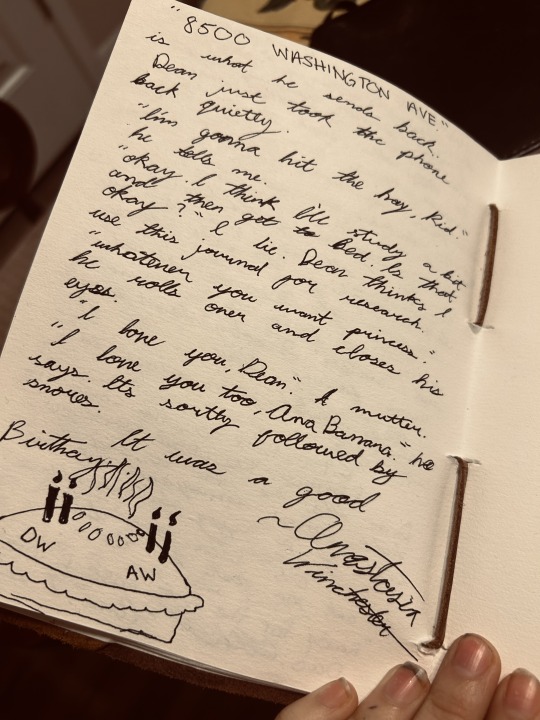 "8500 WASHINGTON AVE"
is what he sends back.
Dean just took the phone
back quietly.
"I'm gonna hit the hay, kid."
he tells me.
"okay. I think I'll study a bit
and then get to bed. Is that
okay?" I lie. Dean thinks I
use this journal for research.
"whatever you want princess."
he rolls over and closes his
eyes.
"I love you, Dean." I mutter.
"I love you too, Ana Banana." he
says. Its sortly followed by
snores.
It was a good
Birthay
~Anastasia
Winchester
DW
AW